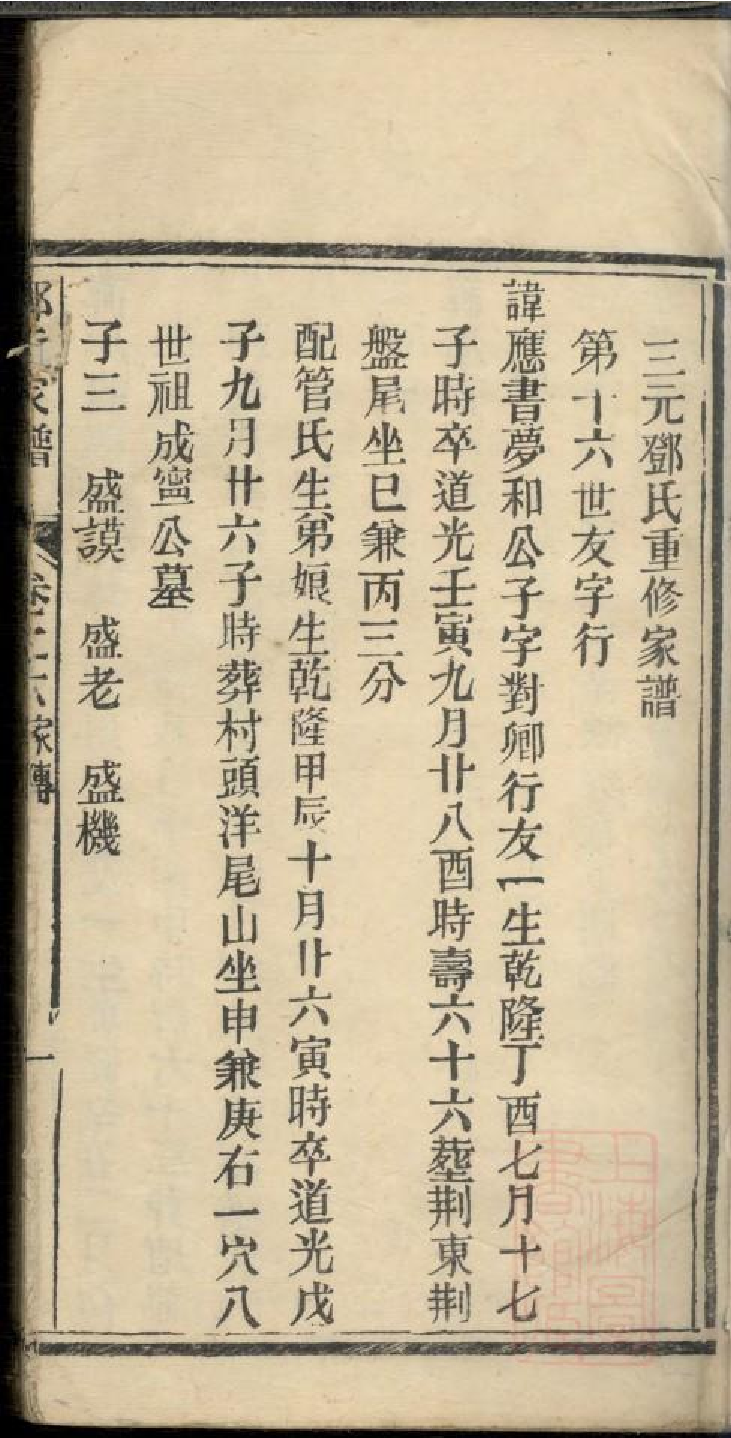 三元鄧氏重修家譜
第十六世友字行
諱應書夢和公子字對卿行友一生乾隆丁酉七月十七
子時卒道光壬寅九月廿八酉時壽六十六塟荆東荆
盤尾坐巳兼丙三分
配管氏生弟娘生乾隆甲辰十月廿六寅時卒道光戊
子九月廿六子時葬村頭洋尾山坐申兼庚右一穴八
世祖成寧公墓
子三 盛謨 盛老 盛機
家譜
家傳
一
上海圖
書館